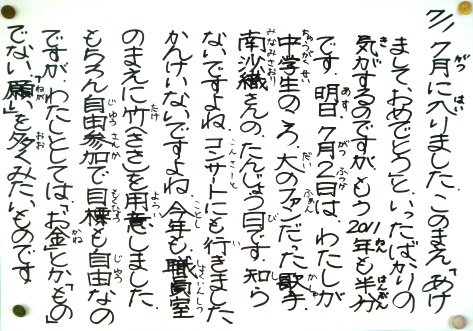 7/1 7月に入りました。このまえ「あけ
まして、おめでとう」といったばかりの
気がするのですが、もう2011年も半分
です。明日7月2日は、わたしが
中学生のころ、大のファンだった歌手
南沙織さんのたんじょう日です。知ら
ないですよね。コンサートにも行きました。
かんけいないですよね。今年も、職員室
のまえに竹ざさを用意しました。
もちろん自由参加で目標も自由なの
ですが、わたしとしては、「お金」とか「もの」
でない「願い」を多くみたいものです。